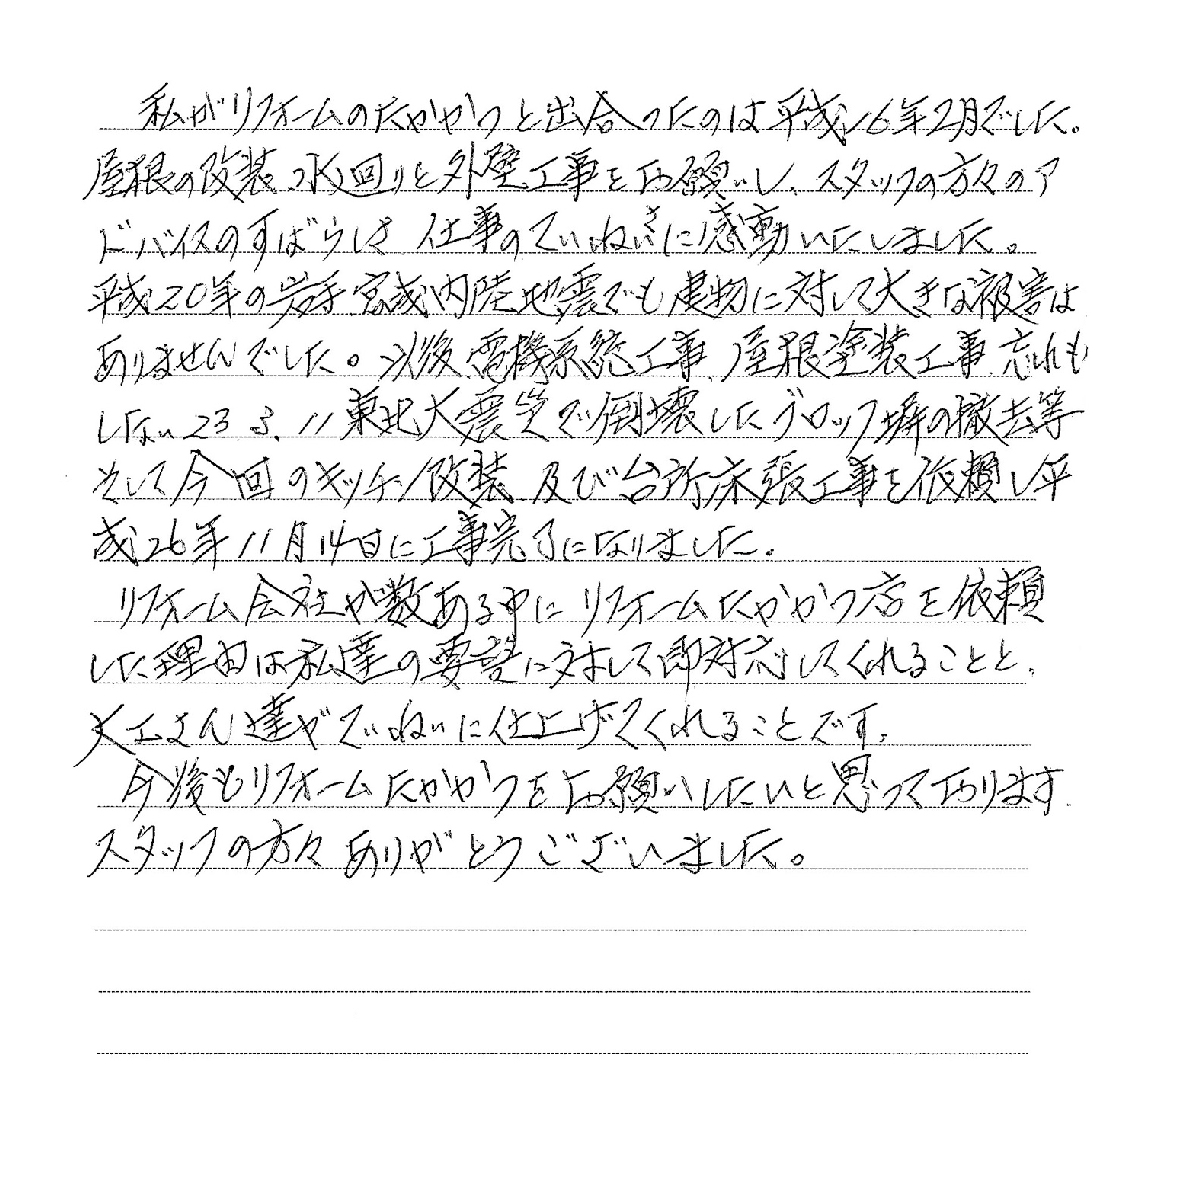 私がリフォームのたかかつと出合ったのは平成16年2月でした。
屋根の改装 水回りと外壁工事をお願いし、スタッフの方々のア
ドバイスのすばらしさ 仕事のていねいさに感動いたしました。
平成20年の岩手宮城内陸地震でも建物に対して大きな被害は
ありませんでした。以後電機系統工事、屋根塗装工事 忘れも
しない23.3.11東北大震災で倒壊したブロック塀の撤去等
そして今回のキッチン改装 及び台所床張工事を依頼し平
成26年11月14日に工事完了になりました。
リフォーム会社が数ある中にリフォームたかかつ店を依頼
した理由は私達の要望に対して即対応してくれることと、
大工さん達がていねいに仕上げてくれることです。
今後もリフォームたかかつをお願いしたいと思っております。
スタッフの方々ありがとうございました。